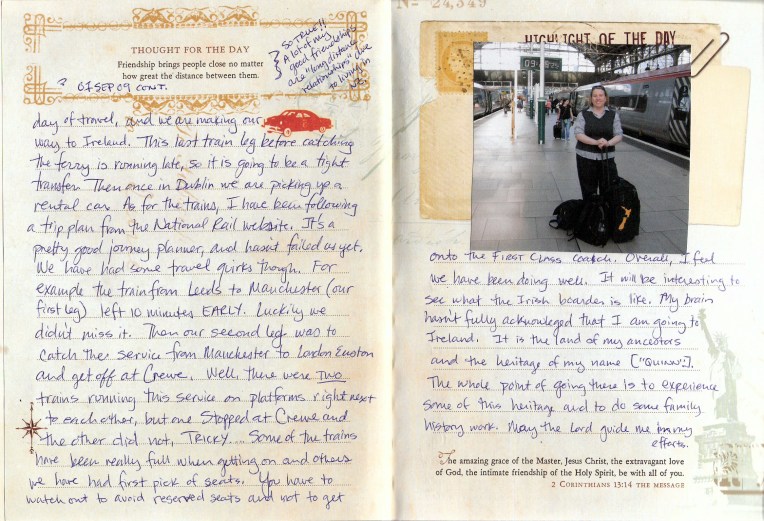 THOUGHT FOR THE DAY
Friendship brings people close no matter
how great the distance between them.
SO TRUE!!
A lot of my
good friendships
are long distance
relationships due
to living in
01 SEP 09 CONT.
day of travel, and we are making our
way to Ireland. This last train leg before catching
the ferry is running late, so it is going to be a tight
transfer. Then once in Dublin we are picking up a
rental car. As for the trains, I have been following
a trip plan from the National Rail website. It's a
pretty good journey planner, and hasn't failed us yet.
We have had some travel quirks though. For
example the train from Leeds to Manchester (our
first leg) left 10 minutes EARLY. Luckily we
didn't miss it. Then our second leg was to
catch the service from Manchester to London Euston
and get off at Crewe. Well, there were TWO
trains running this service on platforms right next
to each other, but one stopped at Crewe and
the other did not, TRICKY.... Some of the trains
have been really full when getting on and others
we have had first pick of seats. You have to
watch out to avoid reserved seats and not to get
No 24,349
HIGHLIGHT OF THE DAY
onto the FIRST CLASS coach. Overall, I feel
we have been doing well. It will be interesting to
see what the Irish boarder is like. My brain
hasn't fully acknowleged that I am going to
Ireland. It is the land of my ancestors
and the heritage of my name ["QUINN"].
The whole point of going there is to experience
some of this heritage and to do some family
history work. May the Lord guide me in my
efforts.
The amazing grace of the Master, Jesus Christ, the extravagant love
of God, the intimate friendship of the Holy Spirit, be with all of you.
2 CORINTHIANS 13:14 THE MESSAGE